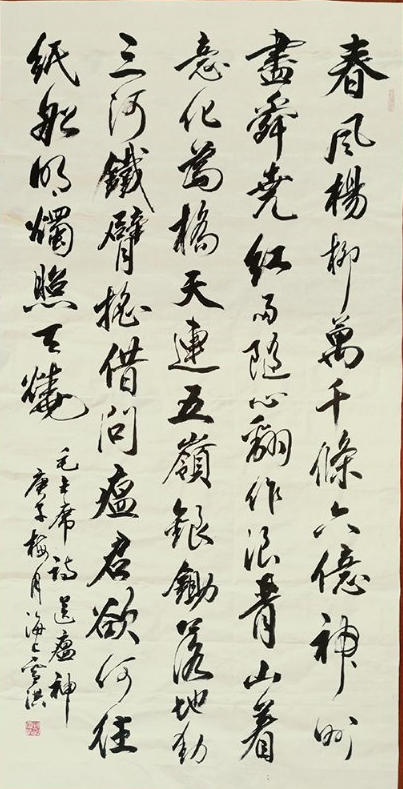 春風楊柳萬千條六億神州
盡舜堯紅雨隨心翻作浪青山着
意化為橋天連五嶺銀鋤落地動
三河鐵臂搖借問瘟君欲何往
紙船明燭照天燒
毛主席詩送瘟神
庚子梅月海上